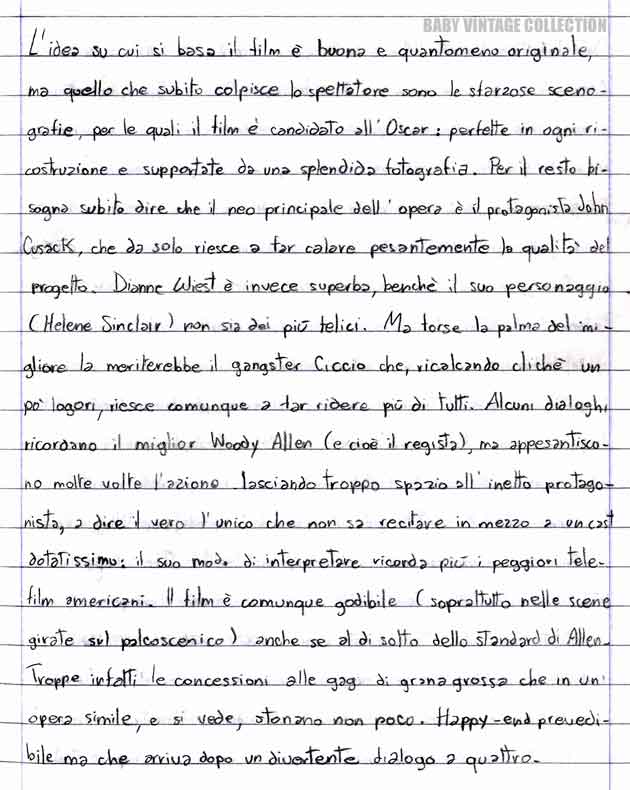 BABY VINTAGE COLLECTION
L'idea su cui si basa il film è buona e quantomeno originale,
ma quello che subito colpisce lo spettatore sono le sfarzose sceno-
grafie, per le quali il film è candidato all'Oscar: perfette in ogni ri-
costruzione e supportate da una splendida fotografia. Per il resto bi-
sogna subito dire che il neo principale dell'opera è il protagonista John
Cusack, che da solo riesce a far calare pesantemente la qualità del
progetto. Dianne Wiest è invece superba, benchè il suo personaggio
(Helene Sinclair) non sia dei più felici. Ma forse la palma del mi-
gliore la meriterebbe il gangster Ciccio che, ricalcando clichè un
pò logori, riesce comunque a far ridere più di tutti. Alcuni dialoghi
ricordano il miglior Woody Allen (e cioè il regista), ma appesantisco-
no molte volte l'azione lasciando troppo spazio all'inetto protago-
nista, a dire il vero l'unico che non sa recitare in mezzo a un cast
dotatissimo: il suo modo di interpretare ricorda più i peggiori tele-
film americani. Il film è comunque godibile (soprattutto nelle scene
girate sul palcoscenico) anche se al di sotto dello standard di Allen.
Troppe infatti le concessioni alle gag di grana grossa che in un'
opera simile, e si vede, stonano non poco. Happy-end prevedi-
bile ma che arriva dopo un divertente dialogo a quattro.